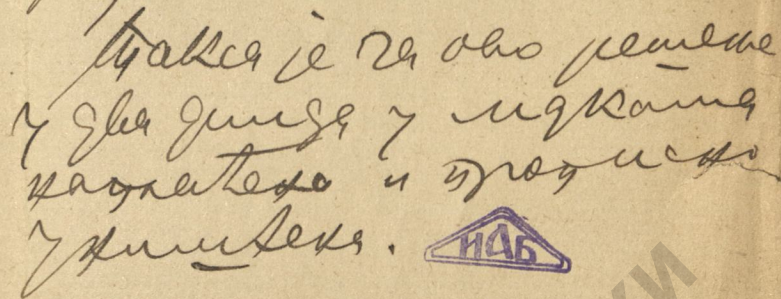 Такса је за ово решење
у два динара у маркама
наплаћена и прописно
уништена.
ИАБ
КИ